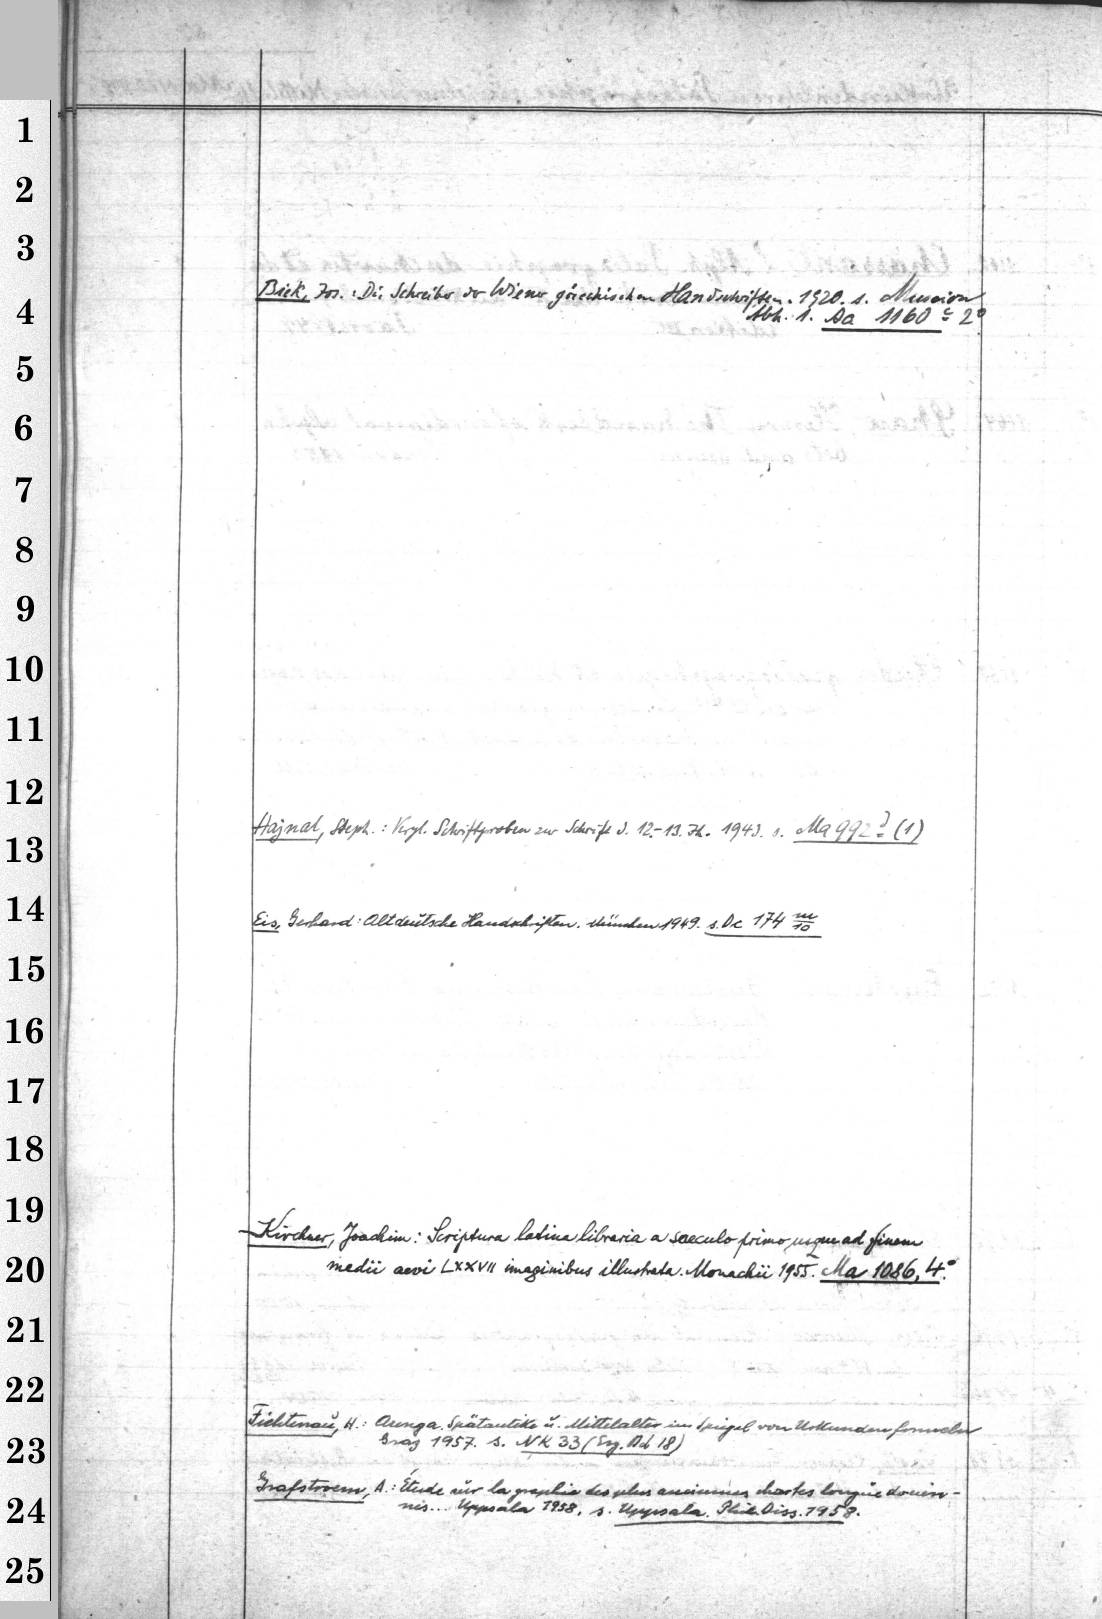 1
2
3
Bick, Jos.: Die Schreiber der Wiener griechischen Handschriften. 1920. s. Museion
4
Abh. 1. Da 1160 c 2°
5
6
7
8
9
10
11
12
Hajnal, Steph.: Vergl. Schriftproben zur Schrift d. 12.-13. Jh. 1943. s. Ma 992 (1)
13
14
Eis, Gerhard: Altdeutsche Handschriften. München 1949. s. Dc 174 m/10
15
16
17
18
19
Kirchner, Joachim: Scriptura latina libraria a saeculo primo usque ad finem
20
medii aevi LXXVII imaginibus illustrata. Monachii 1955. Ma 1086, 4°.
21
22
Fichtenau, H.: Arenga. Spätantike u. Mittelalter im Spiegel von Urkundenformeln
23
Graz 1957. s. NK 33 (Erg. Bd 18)
Grafstroem, A.: Étude sur la graphie des plus anciennes chartes
24
nis... Uppsala 1958. s. Uppsala. Phil. Diss. 1958.
25